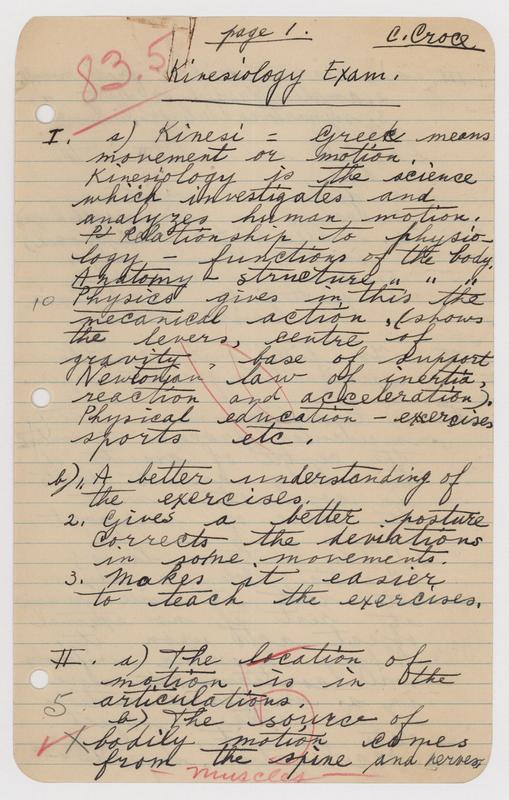 page 1.
C. Croce
83.5
Kinesiology Exam.
I. a) Kinesi = Greek means
movement or motion.
Kinesiology is the science
which investigates and
analyzes human motion.
It Relationship to physio-
logy - functions of the body.
Anatomy - structure " " "
10 Physics gives in this the
mecanical action, (shows
the levers, centre of
gravity, base of support
Newtonian law of inertia,
reaction and acceleration).
Physical education - exercises
sports etc.
b) 1. A better understanding of
the exercises.
2. Gives a better posture
corrects the deviations
in some movements.
3. Makes it easier
to teach the exercises.
II. a) The location of
motion is in the
5 articulations.
b) The source of
X bodily motion comes
from the spine and nerves
- muscles -